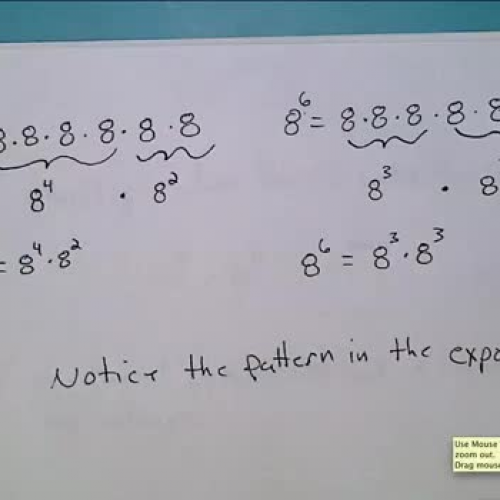 8·8·8·8·8·8
8⁴ · 8²
= 8⁴·8²
8⁶ = 8·8·8·8·8
8³ · 8
8⁶ = 8³·8³
Notice the pattern in the expo
Use Mouse
zoom out.
Drag mouse